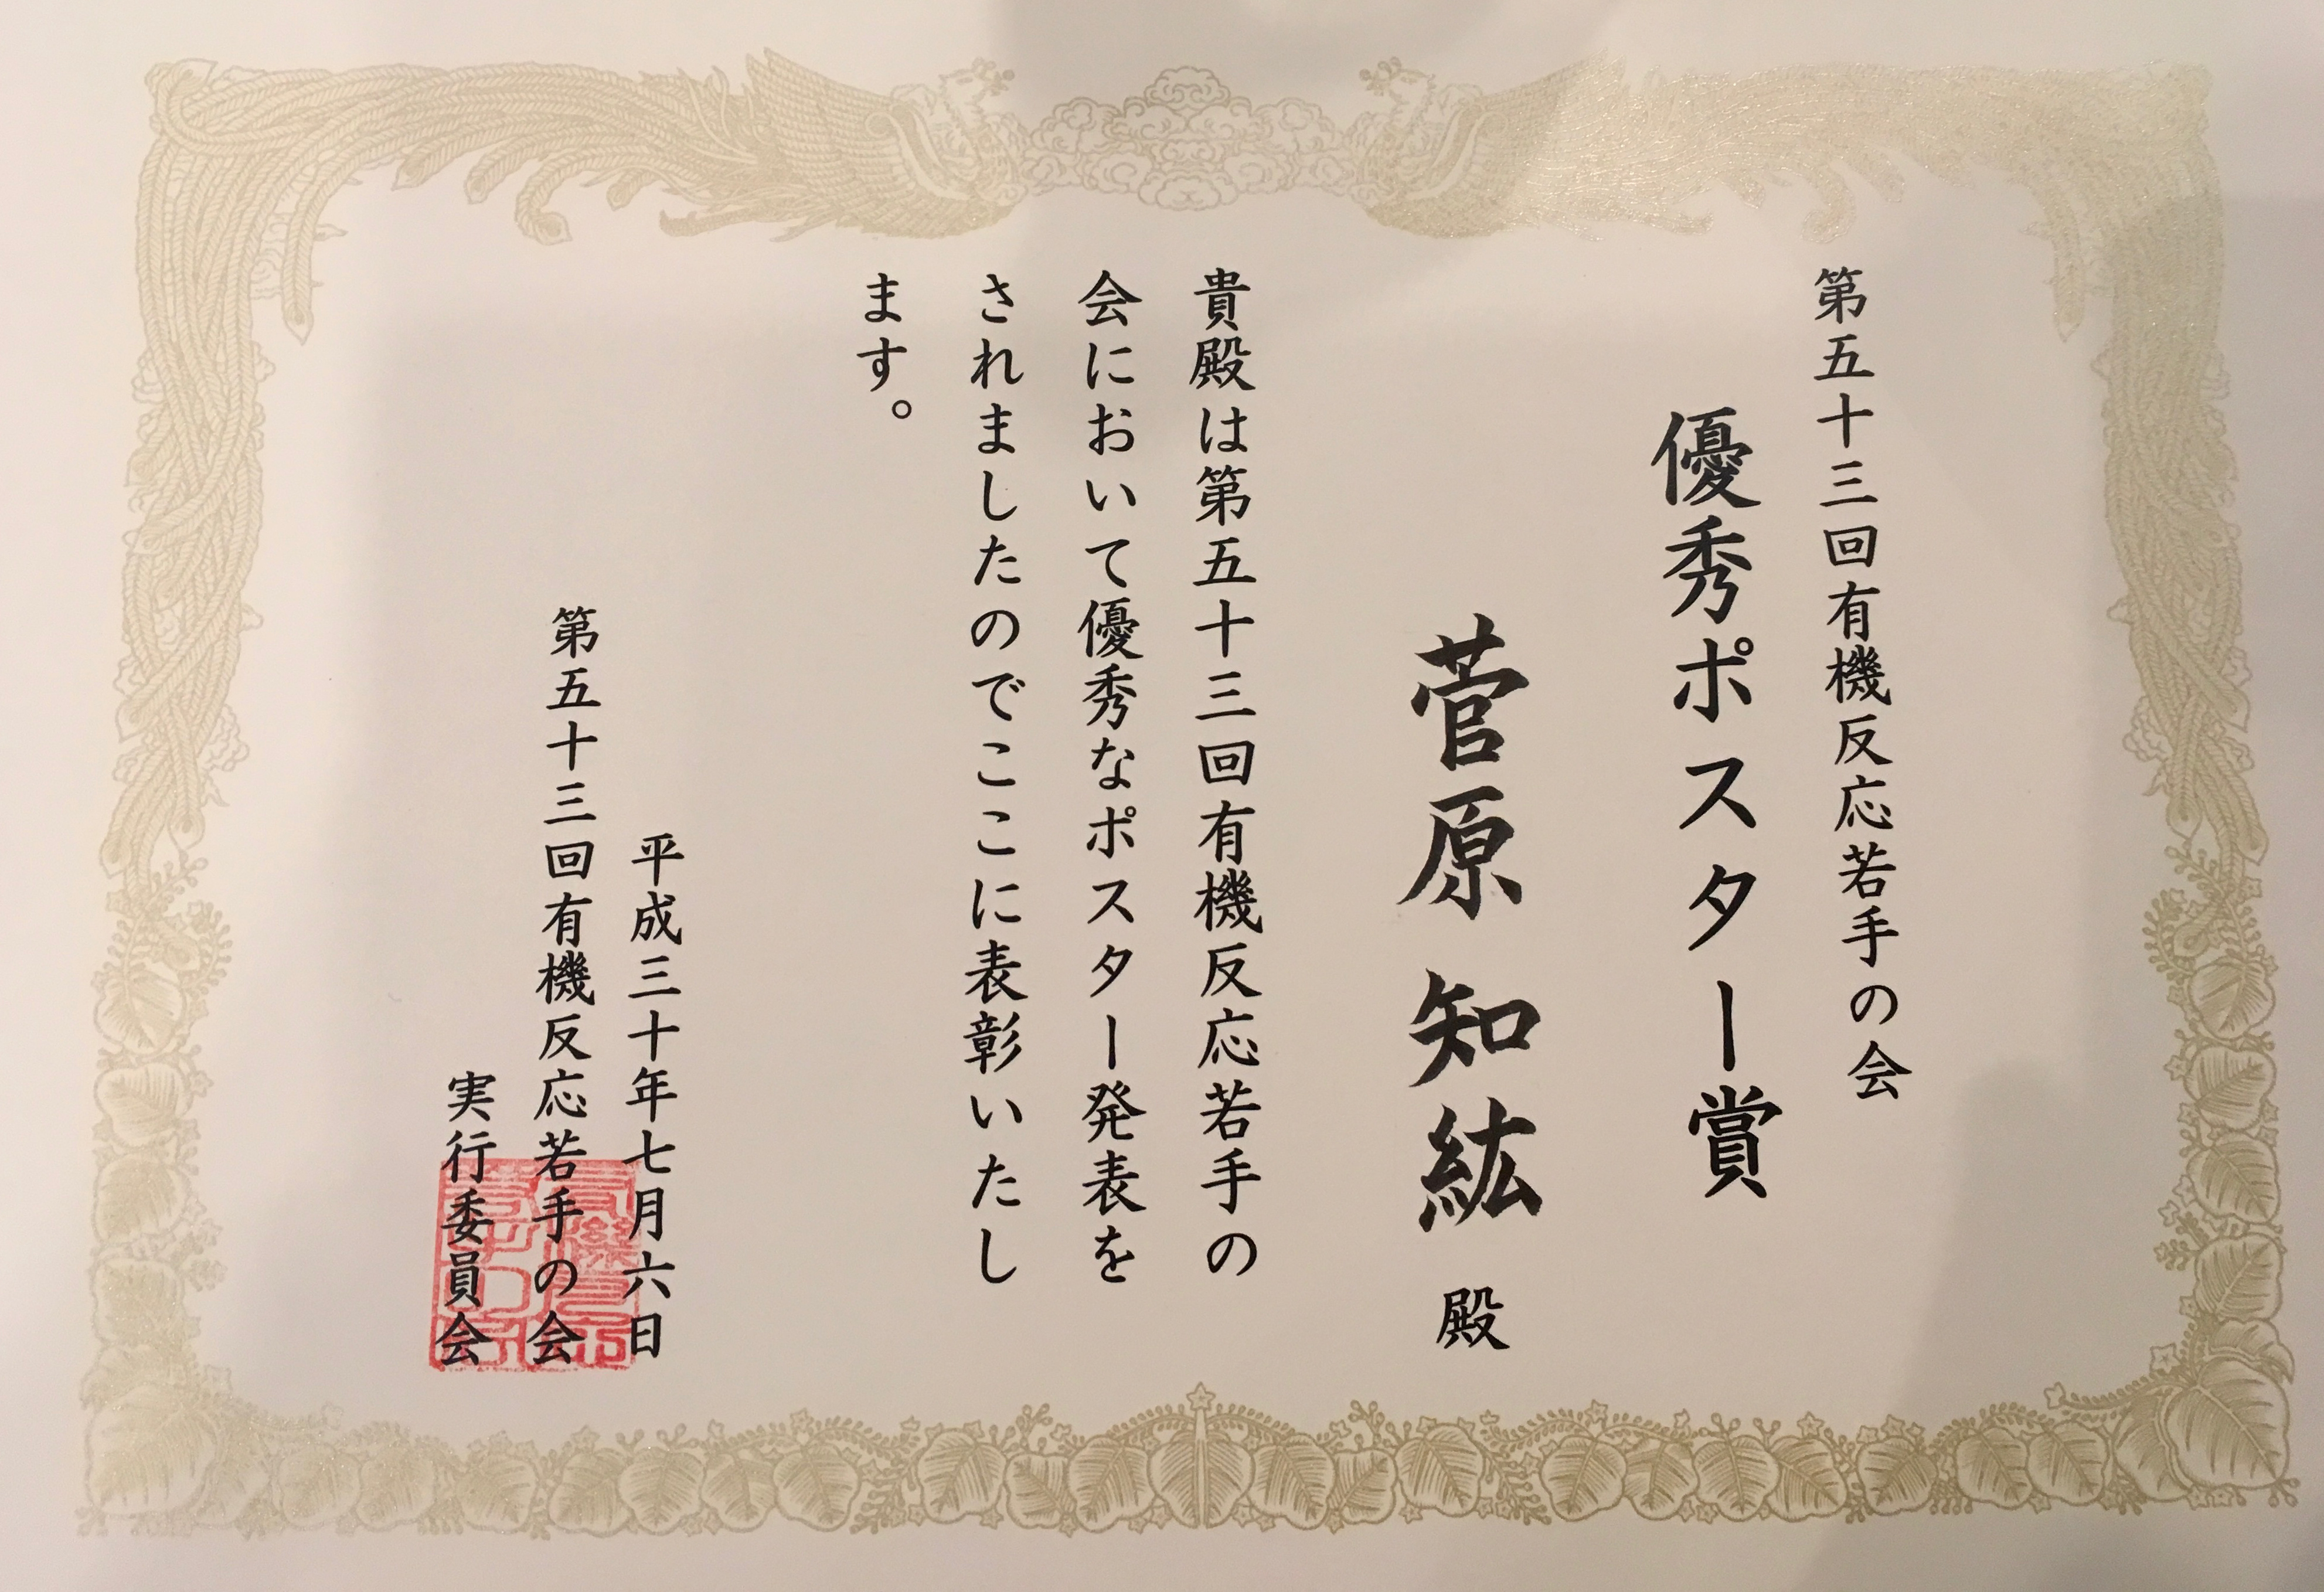 第五十三回有機反応若手の会
優秀ポスター賞
菅原知紘 殿
貴殿は第五十三回有機反応若手の
会において優秀なポスター発表を
されましたのでここに表彰いたし
ます。
平成三十年七月六日
第五十三回有機反応若手の会
実行委員会